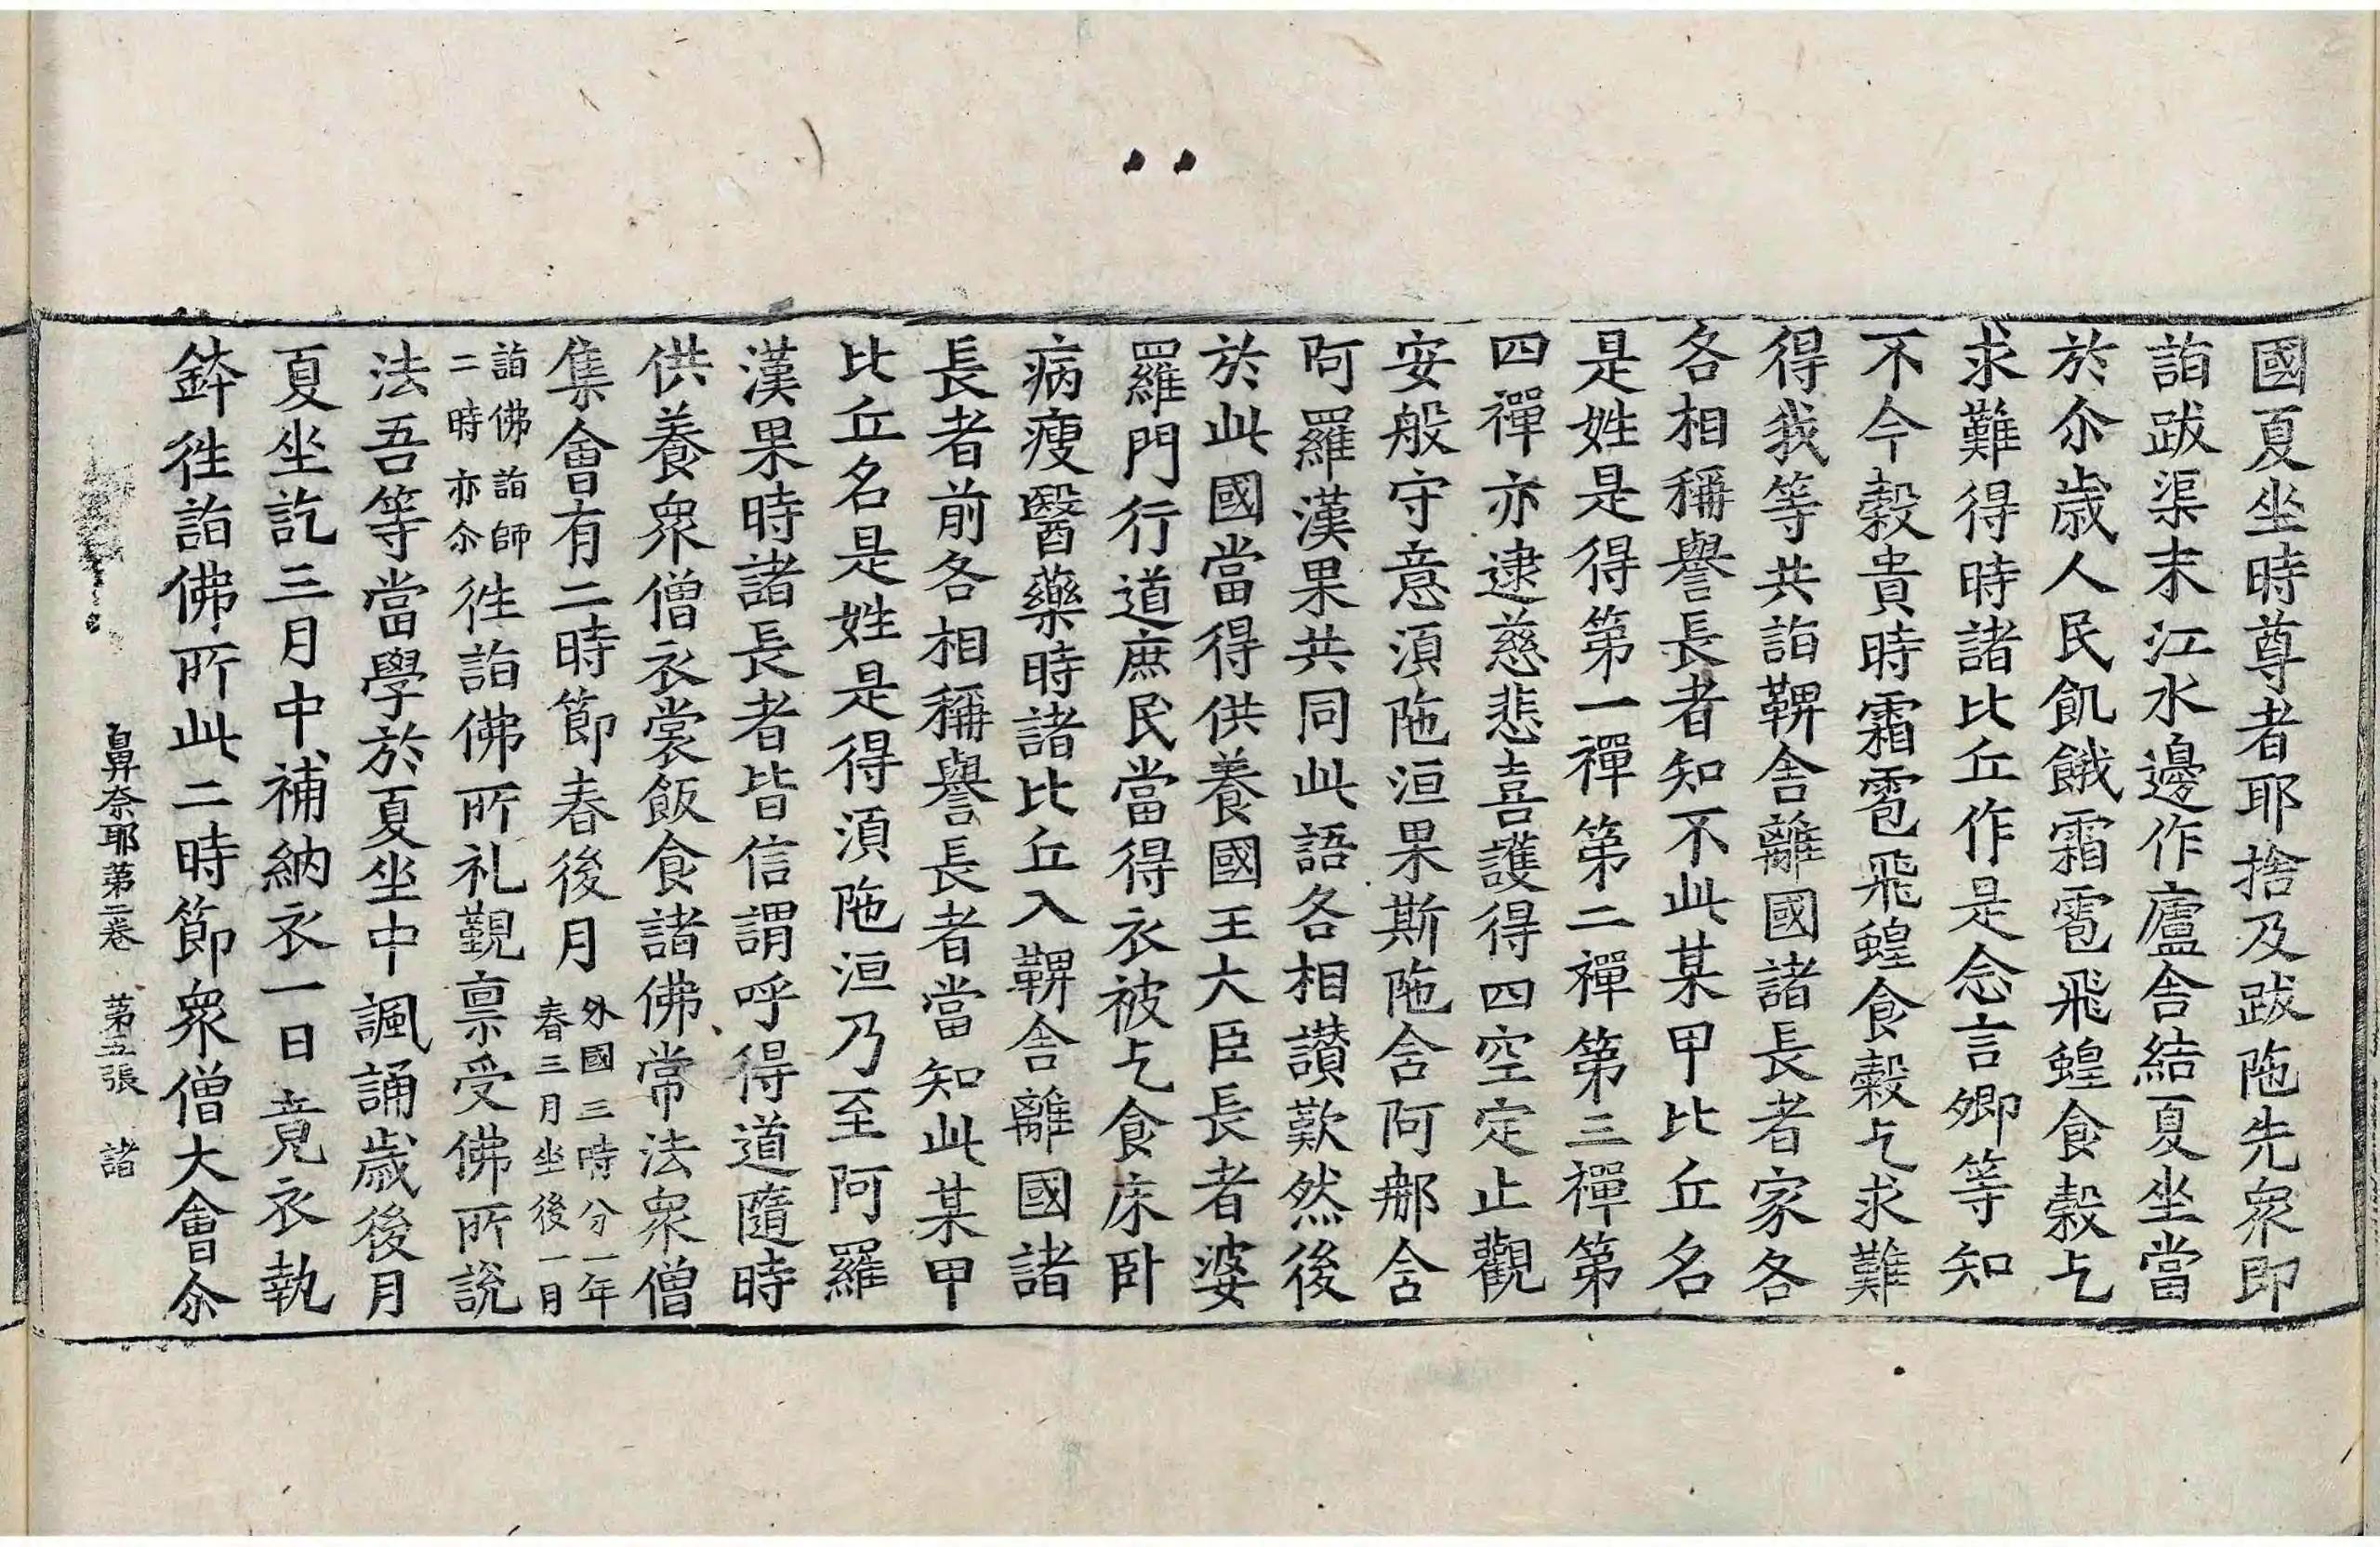 國夏坐時尊者耶捨及跋陁先衆即
詣跋渠末江水邊作廬舍結夏坐當
於尒歲人民飢餓霜雹飛蝗食穀乞
求難得時諸比丘作是念言卿等知
不今穀貴時霜雹飛蝗食穀乞求難
得我等共詣鞞舍離國諸長者家各
各相稱譽長者知不此某甲比丘名
是姓是得第一禪第二禪第三禪第
四禪亦逮慈悲喜護得四空定止觀
安般守意湏陁洹果斯陁含阿那含
阿羅漢果共同此語各相讃歎然後
於此國當得供養國王大臣長者婆
羅門行道庶民當得衣被乞食床卧
病瘦醫藥時諸比丘入鞞舍離國諸
長者前各相稱譽長者當知此某甲
比丘名是姓是得湏陁洹乃至阿羅
漢果時諸長者皆信謂呼得道隨時
供養衆僧衣裳飯食諸佛常法衆僧
集會有二時節春後月外國三時分一年
春三月坐後一月
詣佛詣師
二時亦尒徃詣佛所礼覲禀受佛所說
法吾等當學於夏坐中諷誦歲後月
夏坐訖三月中補納衣一日竟衣執
鉢徃詣佛所此二時節衆僧大會尒
鼻奈耶第二卷 第五張 諸